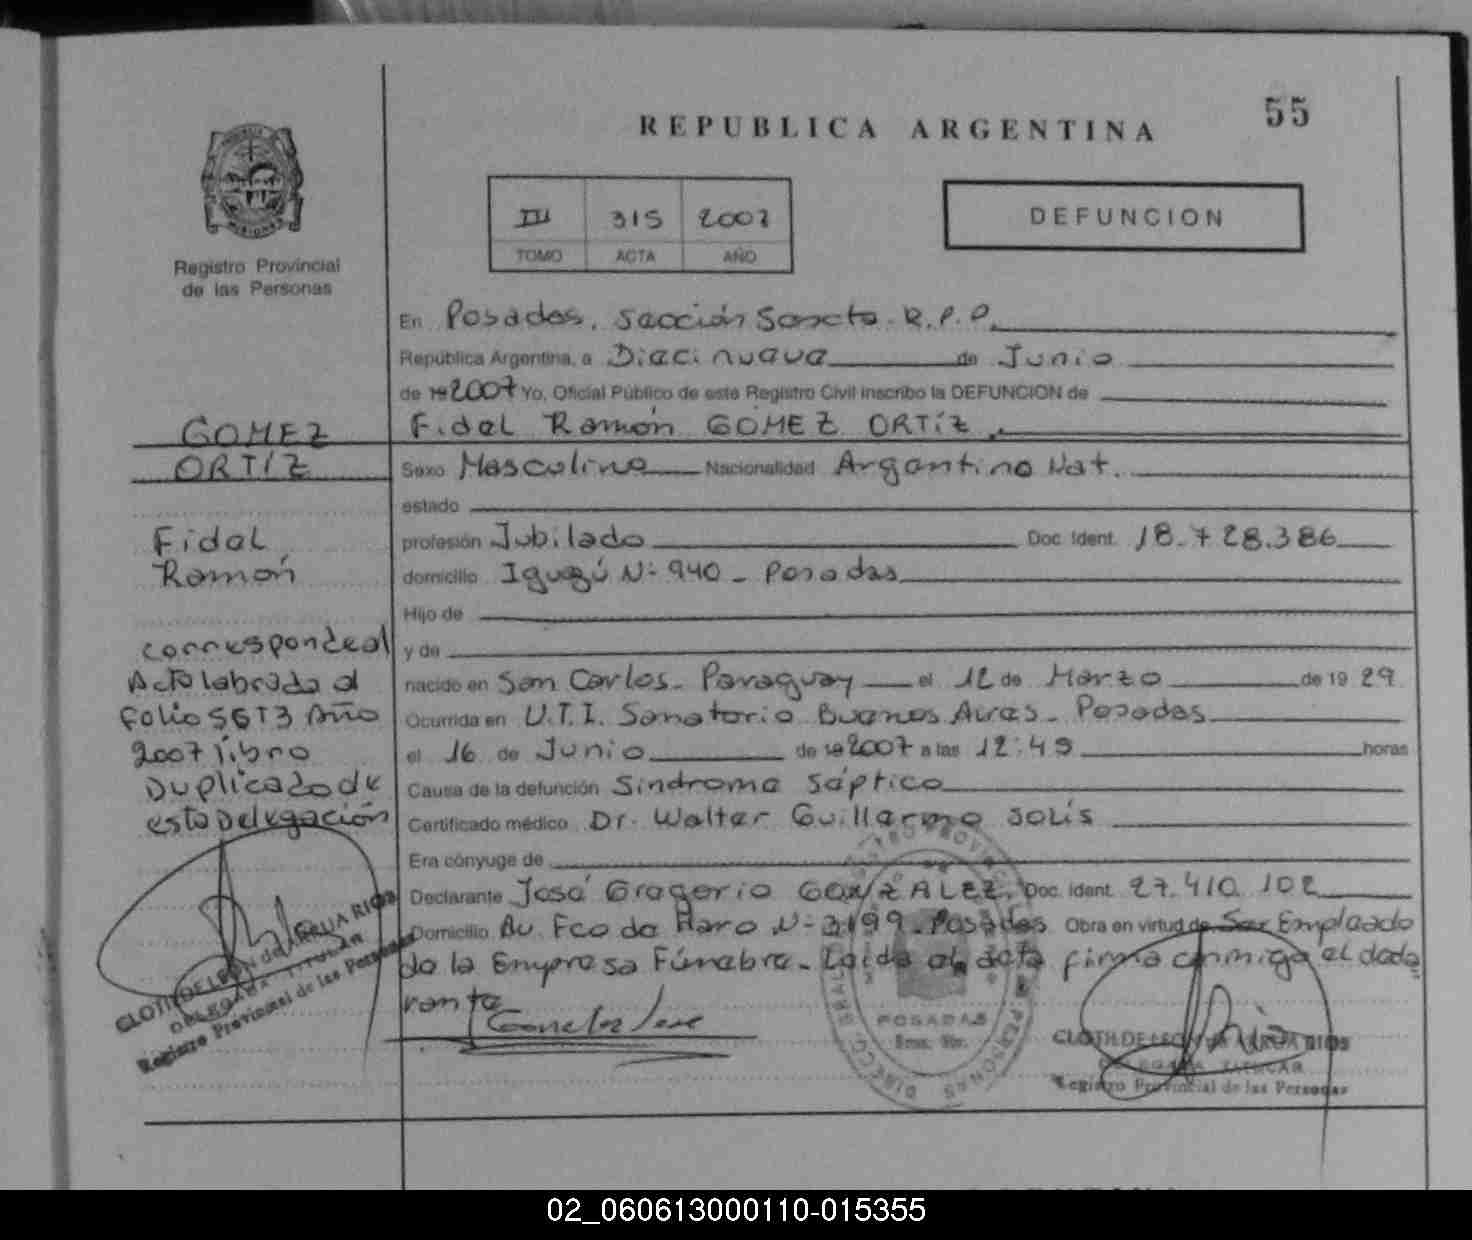 55
REPUBLICA ARGENTINA
III 315 2007
TOMO ACTA AÑO
DEFUNCION
Registro Provincial
de las Personas
En Posadas, Sección Sexcta. R.P.P.
República Argentina, a Diecinueve de Junio
de 19 2007 Yo, Oficial Público de este Registro Civil inscribo la DEFUNCION de
Fidel Ramón GOMEZ ORTÍZ
Sexo Masculino Nacionalidad Argentino Nat.
estado
profesión Jubilado Doc. Ident. 18.728.386
domicilio Iguazú N: 940 - Posadas
Hijo de
y de
nacido en San Carlos - Paraguay el 12 de Marzo de 19 29
Ocurrida en U.T.I. Sanatorio Buenos Aires - Posadas
el 16 de Junio de 19 2007 a las 12:45 horas
Causa de la defunción Sindrome Séptico
Certificado médico Dr. Walter Guillermo Solís
Era cónyuge de
Declarante José Gregorio GONZALEZ, Doc. Ident. 27.410.102
Domicilio Av. Fco de Haro N: 3199 - Posadas Obra en virtud de Ser Empleado
de la Empresa Fúnebre - Leída el acta firma conmigo el decla
rante
Gonzalez Jose
GOMEZ
ORTÍZ
Fidel
Ramón
corresponde al
Acta labrada al
folio 5673 Año
2007 libro
Duplicado de
esta Delegación
CLOTILDE LEON de ARRUA RIOS
DELEGADA TITULAR
Registro Provincial de las Personas
POSADAS
CLOTILDE LEON de ARRUA RIOS
DELEGADA TITULAR
Registro Provincial de las Personas
02_060613000110-015355